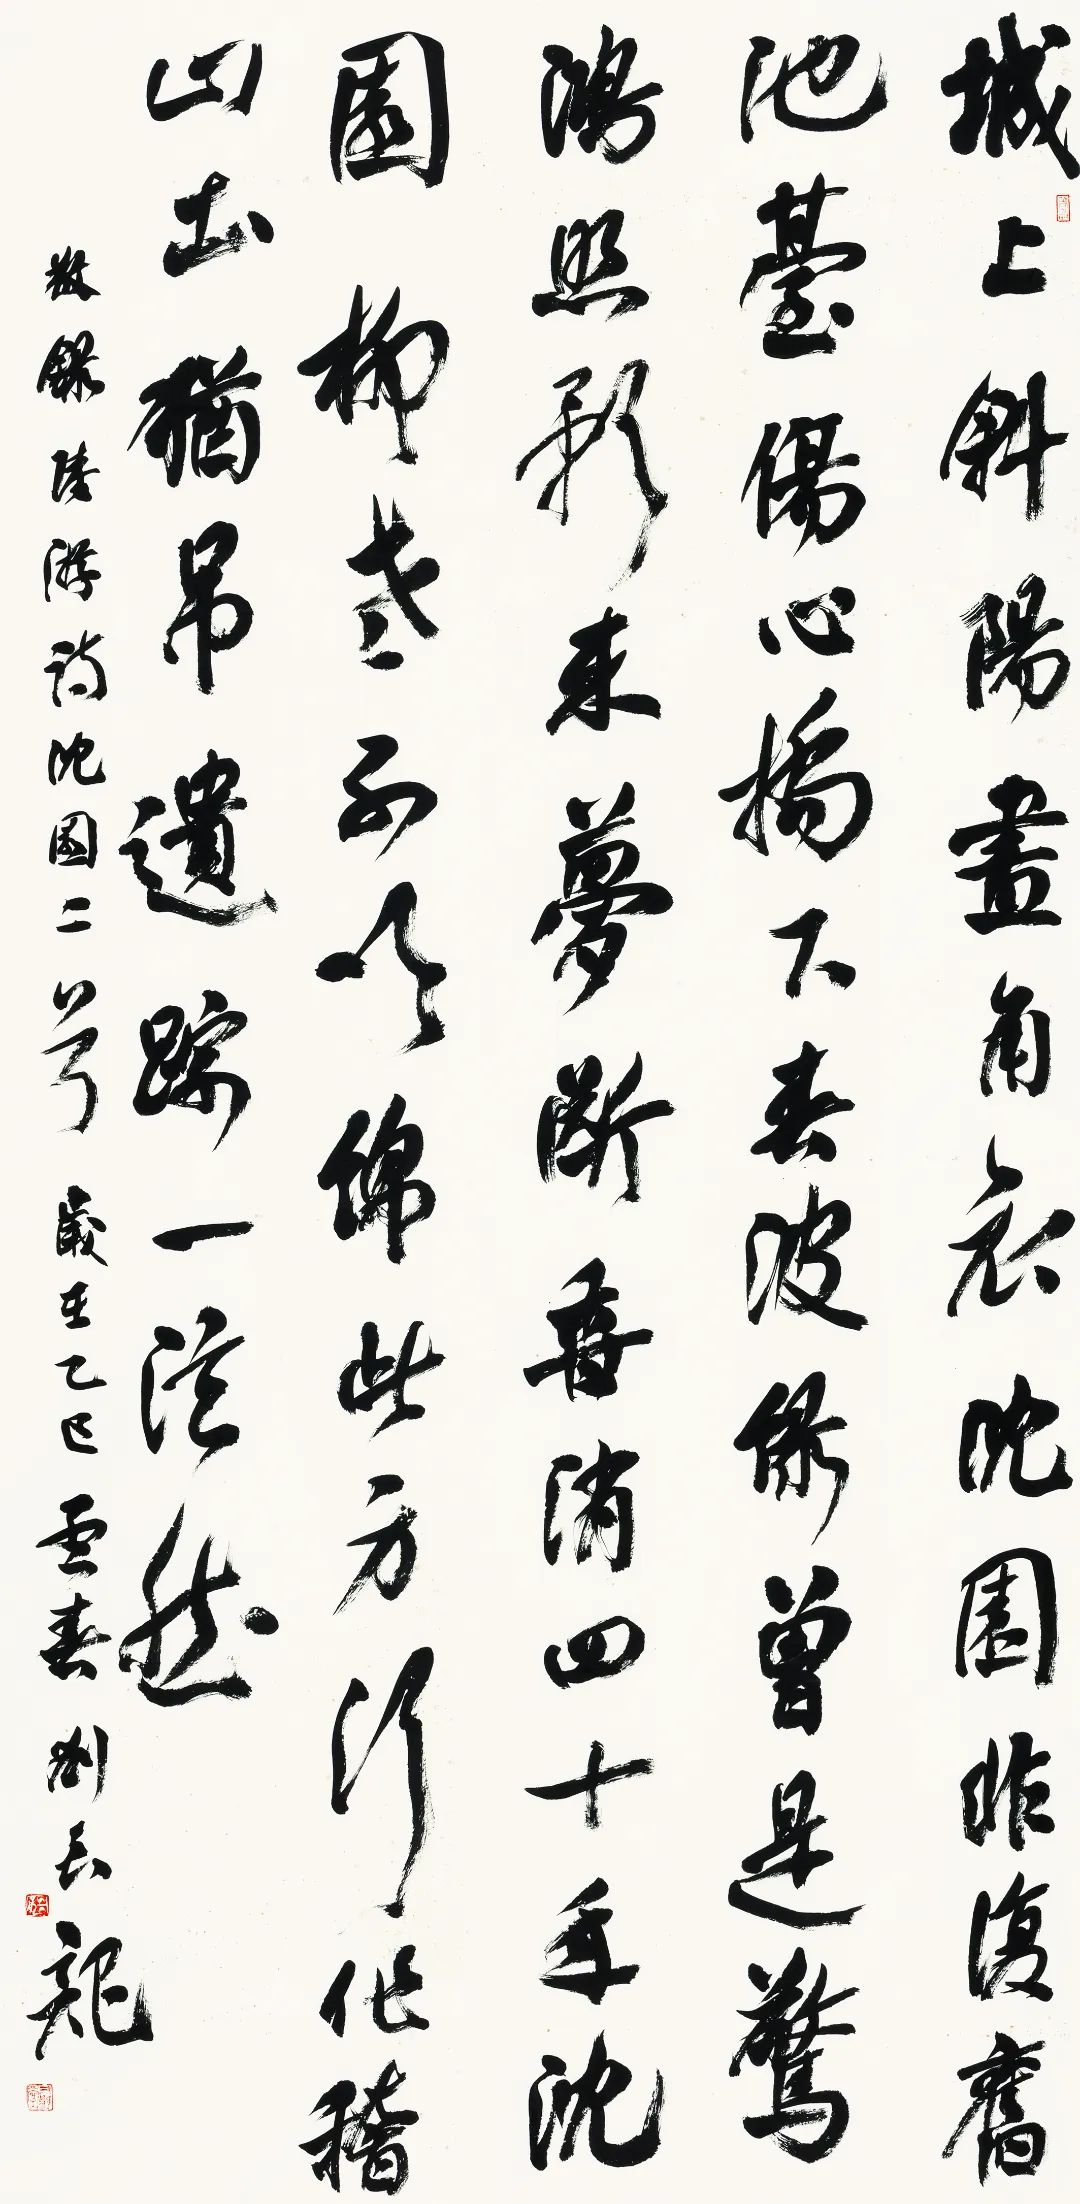 城上斜陽畫角哀沈園非復舊
池臺傷心橋下春波綠曾是驚
鴻照影來夢斷香消四十年沈
園柳老不吹綿此身行作稽
山土猶吊遺踪一泫然
敬錄陸游詩沈園二首歲在乙巳春劉長龍